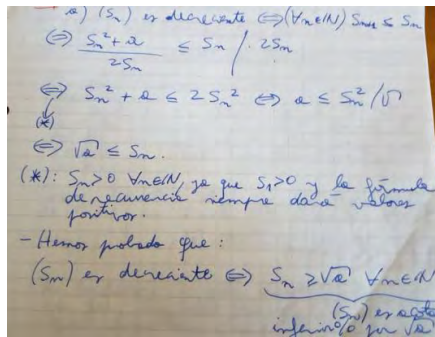 a) (Sn) es decreciente ⟺ (∀n∈ℕ) Sn+1 ≤ Sn
⟺ (Sn² + a) / 2Sn ≤ Sn / · 2Sn
⟺ Sn² + a ≤ 2Sn² ⟺ a ≤ Sn² / √
(*)
⟺ √a ≤ Sn.
(*): Sn>0 ∀n∈ℕ, ya que S1>0 y la fórmula
de recurrencia siempre dará valores
positivos.
- Hemos probado que:
(Sn) es decreciente ⟺ Sn ≥ √a ∀n∈ℕ
(Sn) es acota
inferior% por √a